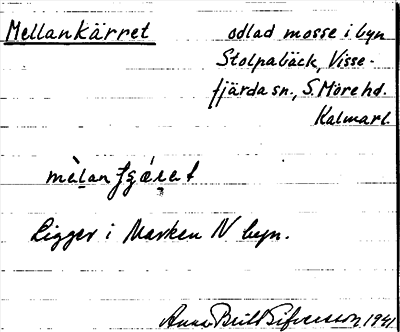 Mellankärret odlad mosse i byn
Stolpabäck, Visse-
fjärda sn., S. Möre hd.
Kalmar l.
Ligger i Marken N byn.
Anna Britt 1941